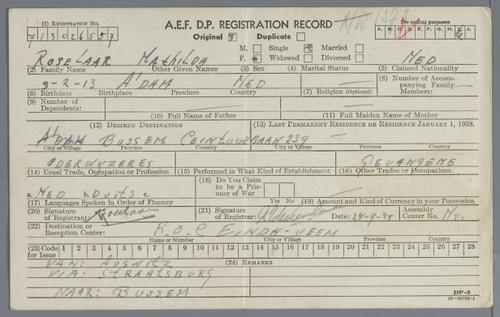 A.E.F. D.P. REGISTRATION RECORD
(1) REGISTRATION NO.
For coding purposes
A. B. C. D. E. F. G. H. I. J.
Original Duplicate
M. Single Married
F. Widowed Divorced
ROSELAAR MATHILDA NED
(2) Family Name Other Given Names (3) Sex (4) Marital Status (5) Claimed Nationality
3-2-13 A'DAM NED
(6) Birthdate Birthplace Province Country (7) Religion (Optional) (8) Number of Accompanying Family Members:
(9) Number of Dependents:
(10) Full Name of Father (11) Full Maiden Name of Mother
(12) DESIRED DESTINATION (13) LAST PERMANENT RESIDENCE OR RESIDENCE JANUARY 1, 1938.
BUSSEM CEINTUURBAAN 239
City or Village Province Country City or Village Province Country
ODERWYZERES GEVANGENE
(14) Usual Trade, Occupation or Profession (15) Performed in What Kind of Establishment (16) Other Trades or Occupations
NED DUITS
(18) Do You Claim to be a Prisoner of War
Yes No
(17) Languages Spoken in Order of Fluency (19) Amount and Kind of Currency in your Possession
(20) Signature of Registrant: Roselaar (21) Signature of Registrar: Date: Assembly Center No.
(22) Destination or Reception Center: EINDH-VEEM
Name or Number City or Village Province Country
(23) Code for Issue 1 2 3 4 5 6 7 8 9 10 11 12 13 14 15 16 17 18 19 20 21 22 23 24 25 26 27 28
(24) REMARKS
VAN: AUSWITZ
VIA: STRAATSBURG
NAAR: BUSSEM
DP-2